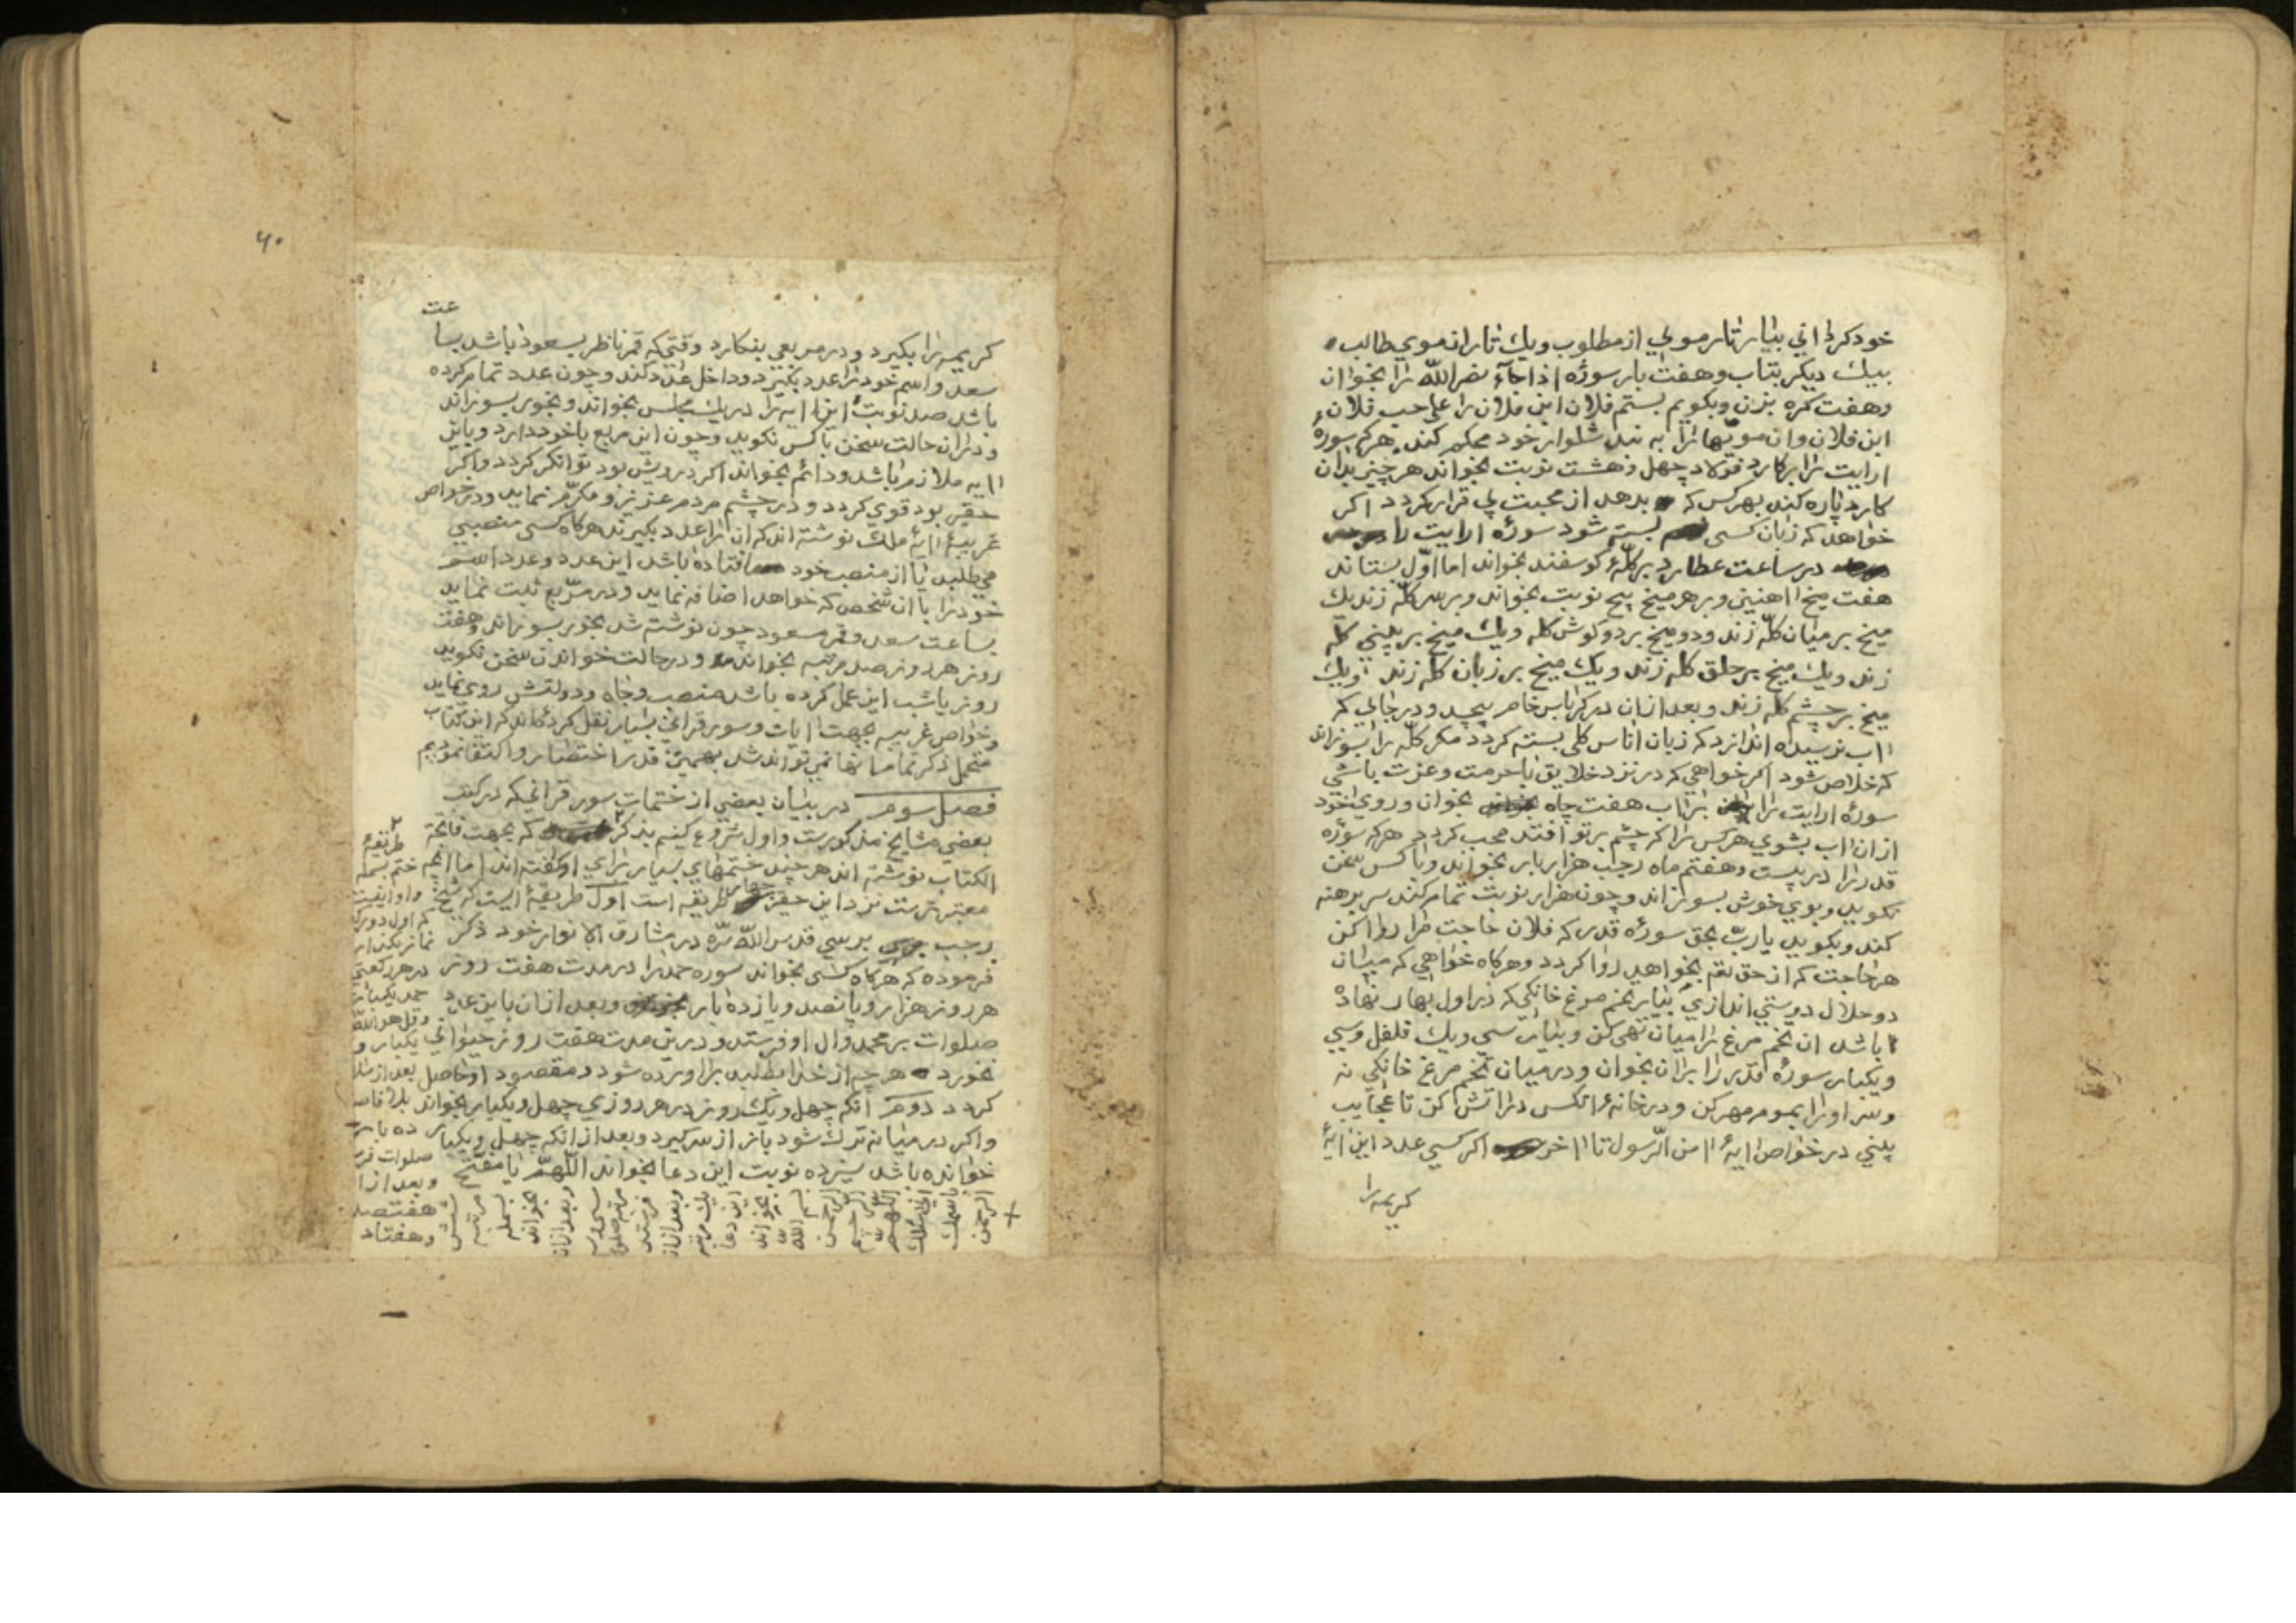 خود كردانی بیار تار موی از مطلوب ویك تار از موی طالب
بیك دیكر بتاب وهفت بار سوره اذا جآء نصر الله را بخوان
وهفت كره بزن وبكویم بستم فلان ابن فلان را علی حب فلان
ابن فلان وان مویها را به بند شلوار خود محكم كند هركه سورهٔ
ارایت را بر كارد فولاد چهل وهشت نوبت بخواند هر چیز بدان
كارد پاره كند بهر كس كه بدهد از محبت بی قرار كردد اكر
خواهد كه زبان كسی بسته شود سوره ارایت را
در ساعت عطارد بر كلهٔ كوسفند بخواند اما اول بستاند
هفت میخ اهنین وبر هر میخ پنج نوبت بخواند وبر سر كله زند یك
میخ بر میان كله زند ودو میخ بر دو كوش كله ویك میخ بر بینی كله
زند ویك میخ بر حلق كله زند ویك میخ بر زبان كله زند ویك
میخ بر چشم كله زند وبعد ازان در كرباس خام پیچد ودر جایی كه
اب نرسیده اندازد كه زبان اناس كلی بسته كردد مكر كله را بسوزاند
كه خلاص شود اكر خواهی كه در نزد خلایق با حرمت وعزت باشی
سورهٔ ارایت را بر اب هفت چاه بخوان وروی خود
از ان اب بشوی هر كس را كه چشم بر تو افتد محب كردد هركه سوره
قدر را در بیست وهفتم ماه رجب هزار بار بخواند وباكس سخن
نكوید وبوی خوش بسوزاند وچون هزار نوبت تمام كند سر برهنه
كند وبكوید یا رب بحق سوره قدر كه فلان حاجت مرا روا كن
هر حاجت كه از حق تع بخواهد روا كردد وهركاه خواهی كه میان
دو حلال دوستی اندازی بیار تخم مرغ خانكی كه در اول بهار نهاده
باشد ان تخم مرغ را میان تهی كن وبیار سی ویك فلفل وسی
ویكبار سوره قدر را بران بخوان ودر میان تخم مرغ خانكی نه
وسر اورا بموم مهر كن ودر خانهٔ انكس در اتش كن تا عجایب
بینی در خواص ایهٔ امن الرسول تا اخر اكر كسی عدد این ایهٔ
كریمه را
۴۰
عت
كریمه را بكیرد ودر مربعی بنكارد وقتی كه قمر ناظر بسعود باشد بسا
سعد واسم خود را عدد بكیرد وداخل عدد كند وچون عدد تمام كرده
باشد صد نوبت این ایه را در یك مجلس بخواند وبخور بسوزاند
ودران حالت سخن با كس نكوید وچون این مربع با خود دارد وباین
ایه ملازم باشد ودائم بخواند اكر درویش بود توانكر كردد واكر
حقیر بود قوی كردد ودر چشم مردم عزیز ومكرم نماید ودر خواص
غریبهٔ ایهٔ ملك نوشته اند كه ان را عدد بكیرند هركاه كسی منصبی
می طلبد یا از منصب خود افتاده باشد این عدد وعدد اسم
خود را با ان شخص كه خواهد اضافه نماید ودر مربع ثبت نماید
بساعت سعد وقمر مسعود چون نوشته شد بخور بسوزاند وهفت
روز هر روز صد مرتبه بخواند ودر حالت خواندن سخن نكوید
روز یا شب این عمل كرده باشد منصب وجاه ودولتش روی نماید
وخواص غریبه بجهت ایات وسور قرانی بسیار نقل كرده اند كه این كتاب
متحمل ذكر تمام انها نمی تواند شد بهمین قدر اختصار واكتفا نمودیم
فصل سوم در بیان بعضی از ختمات سور قرانی كه در كتب
بعضی مشایخ مذكورست واول شروع كنیم بذكر كه بجهت فاتحة
الكتاب نوشته اند هر چند ختمهای بسیار برای او كفته اند اما انچه
معتبرترست نزد این حقیر چهار طریقه است اول طریقهٔ ایست كه شیخ
رجب برسی قدس الله سره در مشارق الانوار خود ذكر
فرموده كه هركاه كسی بخواند سوره حمد را در مدت هفت روز
هر روز هزار وپانصد ویازده بار وبعد ازان باین عدد
صلوات بر محمد وال او فرستد ودرین مدت هفت روز حیوانی
نخورد هر چه از خدا بطلبد براورده شود ومقصود او حاصل
كردد دوم انكه چهل ویك روز در هر روزی چهل ویكبار بخواند
واكر در میانه ترك شود باز از سر كیرد وبعد از انكه چهل ویكبار
خوانده باشد سیزده نوبت این دعا بخواند اللهم یا مفتح
طریقهٔ
ختم بسمله
كه اول دو ركـ
نماز بكذار
در هر ركعتی
حمد یكبار
وقل هو الله
یكبار و
بعد از سلا
ده بار
صلوات فر
وبعد از ا
هفتصد
وهفتاد
شش
مرتبه
بسمله
بخواند
وبعد ازان
سی و
مرتبه صلو
فرستد
وبعد ازان
یك مرتبه
این دعا
بخواند
بسم الله
الرحمن
الرحیم
اللهم
انی اسئلك
باسمك
الرحمن